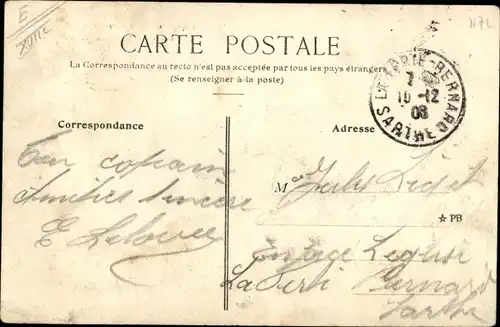 E
CARTE POSTALE
La Correspondance au recto n'est pas acceptée par tous les pays étrangers
(Se renseigner à la poste)
LA FERTÉ-BERNARD
7
10-12
08
SARTHE
Correspondance
Adresse
Ton copain
Amitiés sincère
E
M Jules
☆ PB
En face Léglise
La Ferté Bernard
Sarthe